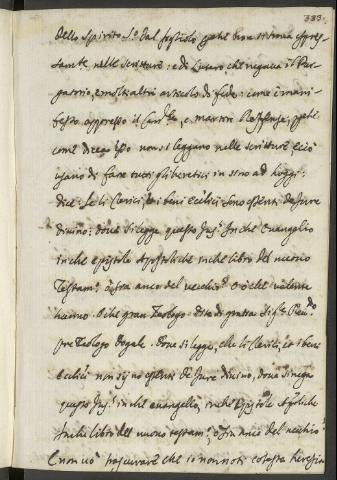 383.
dello Spirito S.to dal figliolo perche bene si troua espres-
samte nelle scritture: e di Lutero che negaua il Pur-
gatorio, e molti altri articolo di fede: come è mani-
festo appresso il Card.le, e martire Roffense, perche
come diceua esso non si leggeua nelle scritture e ciò
usano di fare tutti gli heretici in sino ad hoggi:
dice: se li Clerici, et i beni eccl.ci sono essenti de Jure
diuino: doue si legge questo Jus? In che Euangelio
in che epistole Apostoliche in che libro del nuouo
Testam.to ò sia anco del vecchio? O ò che valente
huomo. O che gran Teologo. Dite di gratia
pre Teologo Dogale. Doue si legge, che li Clerici, et i beni
eccl.ci non sijno essenti de Jure diuino, doue si nega
questo Jus? in che euangelio, in che Epistole Ap.liche
In che libro del nuouo testam.to, ò sia anco del vecchio?
E non uò trascurare che io non noti cotesta heresia